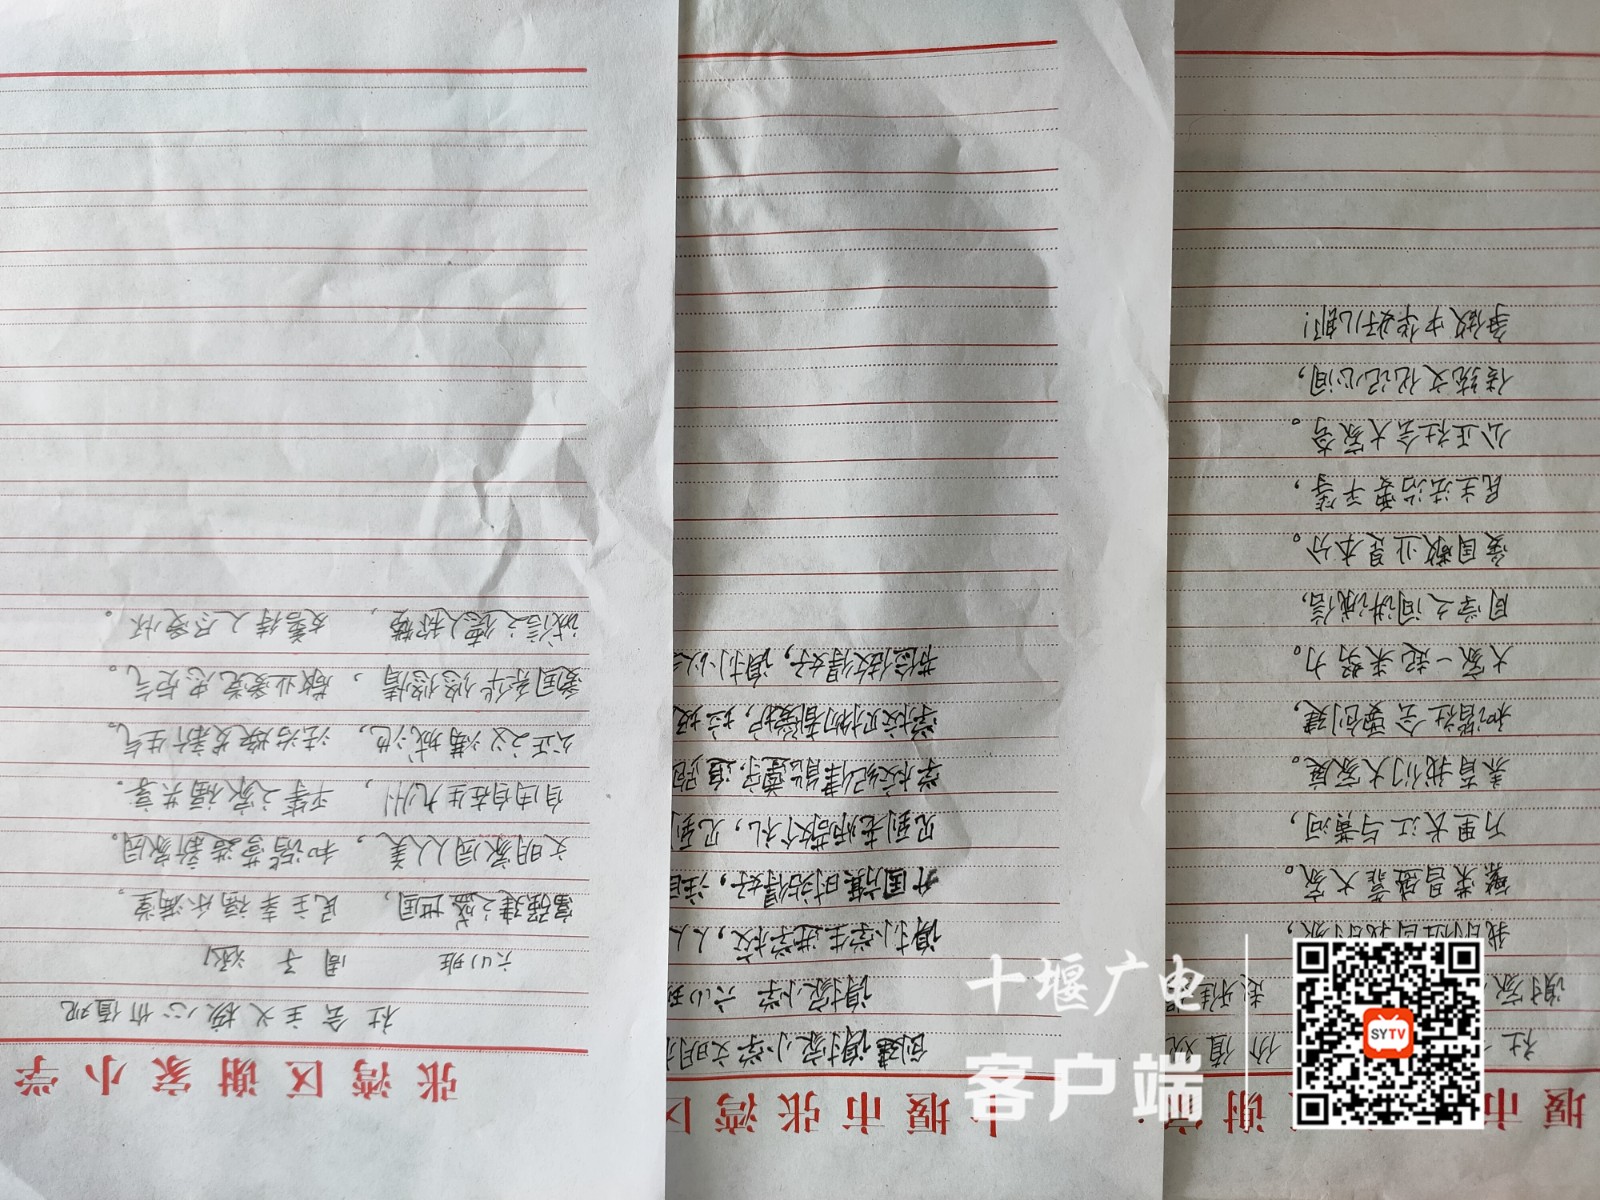 堰市
谢家
社 价值观
谢家
繁荣昌盛靠大家。
万里长江与黄河，
养育我们大家庭。
和谐社会要创建，
大家一起来努力。
同学之间讲诚信，
爱国敬业是本分。
民主法治要平等，
公正社会大家夸。
传统文化记心间，
争做中华好儿郎！
十堰市张湾区
创建谢家小学文明
谢家小学 六(1)班
谢小学生进学校，人人
升国旗时站得好，注目
见到老师敬个礼，见到
学校纪律能遵守，追跑
学校财物有爱护，垃圾
做得好，谢小以
张湾区谢家小学
社会主义核心价值观
六(1)班 周子
富强建之盛世国， 民主幸福乐满堂。
文明家园人人美， 和谐营造新家园。
自由自在生九州， 平等之家福共享。
公正之义满城池， 法治焕发新生气。
爱国 华悠悠情， 敬业爱 忠贞气。
诚信之德人称赞， 友善待人尽爱怀。
十堰广电
客户端
SYTV